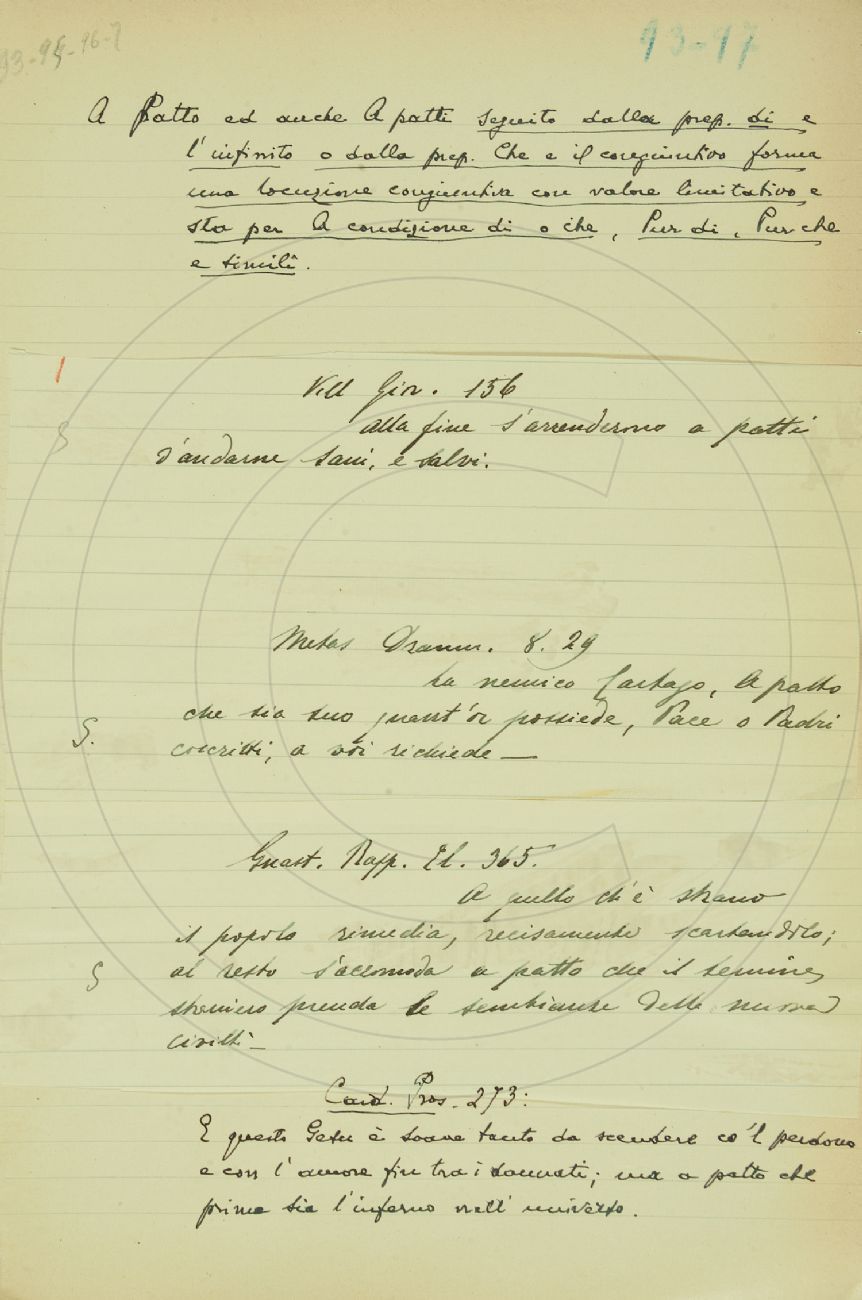 93-95-96-7
93-97
A Patto ed anche A patti seguito dalla prep. di e
l'infinito o dalla prep. Che e il congiuntivo forma
una locuzione congiuntiva con valore limitativo e
sta per A condizione di o che, Pur di, Purche
e simili.
Vill Giov. 156
alla fine s'arrenderono a patti
d'andarne sani, e salvi.
Metas Dramm. 8. 29
La nemica Cartago, A patto
che sia suo quant'or possiede, Pace o Padri
S.
coscritti, a voi richiede —
Guast. Rapp. It. 365.
A quello ch'è strano
il popolo rimedia, recisamente scartandolo;
al resto s'accomoda a patto che il termine
S
straniero prenda le sembianze della nuova
civiltà —
Card. Pros. 273:
E questo Gesù è soave tanto da scendere co'l perdono
e con l'amore fin tra i dannati; ma a patto che
prima sia l'inferno nell'universo.